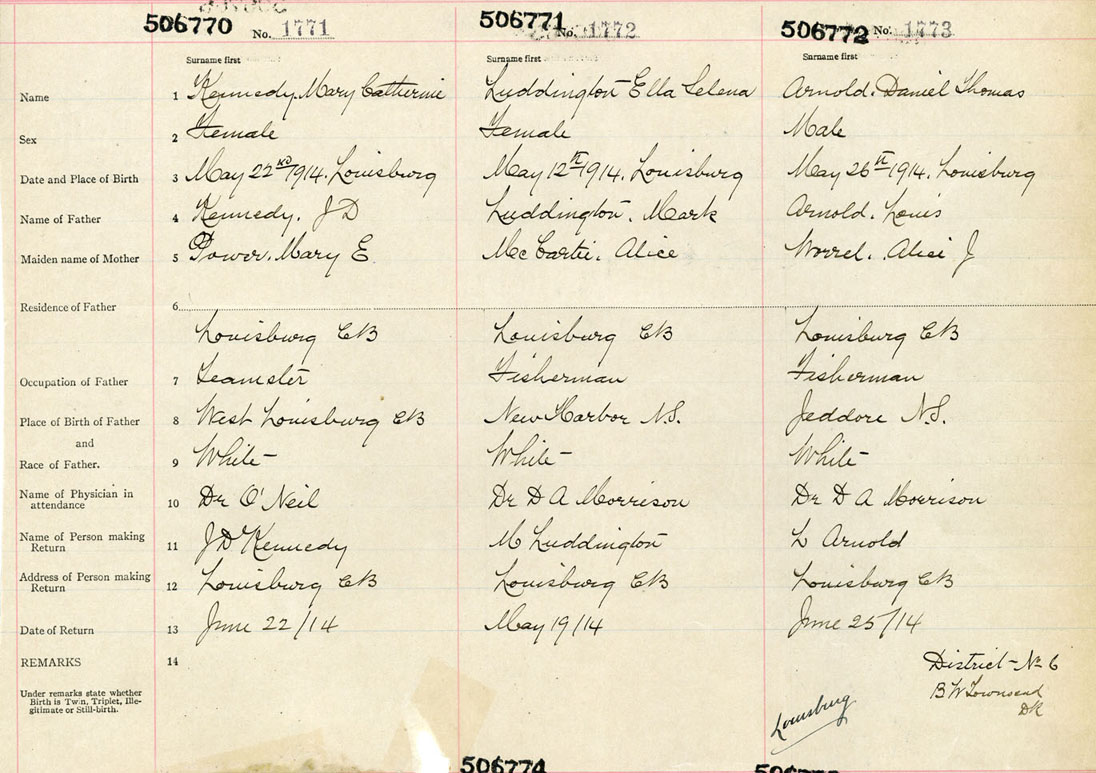 506770 No. 1771 506771 No. 1772 506772 No. 1773
Surname first Surname first Surname first
Name 1 Kennedy, Mary Catherine Luddington Ella Selena Arnold, Daniel Thomas
Sex 2 Female Female Male
Date and Place of Birth 3 May 22nd 1914, Louisburg May 12th 1914, Louisburg May 26th 1914, Louisburg
Name of Father 4 Kennedy, J D Luddington, Mark Arnold, Louis
Maiden name of Mother 5 Power, Mary E. McCartie, Alice Worrel, Alice J
Residence of Father 6
Louisburg CB Louisburg CB Louisburg CB
Occupation of Father 7 Teamster Fisherman Fisherman
Place of Birth of Father 8 West Louisburg CB New Harbor N.S. Jeddore N.S.
and
Race of Father. 9 White White White
Name of Physician in
attendance 10 Dr O'Neil Dr D A Morrison Dr D A Morrison
Name of Person making
Return 11 J D Kennedy M Luddington L Arnold
Address of Person making
Return 12 Louisburg CB Louisburg CB Louisburg CB
Date of Return 13 June 22/14 May 19/14 June 25/14
REMARKS 14 District No 6
Under remarks state whether
Birth is Twin, Triplet, Ille-
gitimate or Still-birth.
B W Townsend
DR
Louisburg
506774